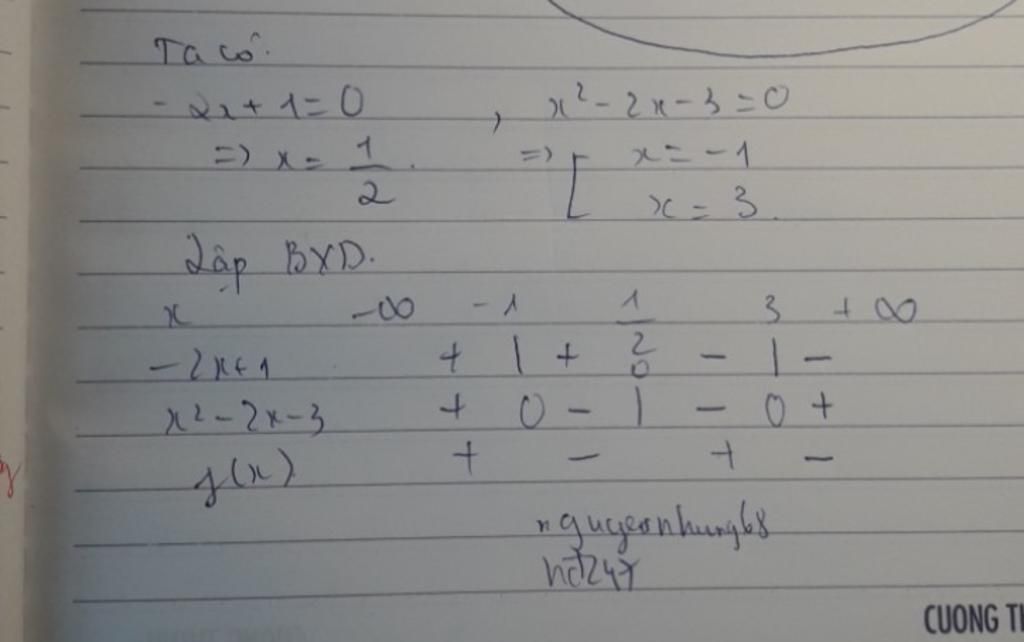 Ta có:
-2x+1=0 , x²-2x-3=0
=> x= 1/2. => [ x=-1
x=3.
Lập BXD.
x -∞ -1 1/2 3 +∞
-2x+1 + | + 0 - | -
x²-2x-3 + 0 - | - 0 +
f(x) + - + -
nguyeonhung68
hđ247
CUONG TH